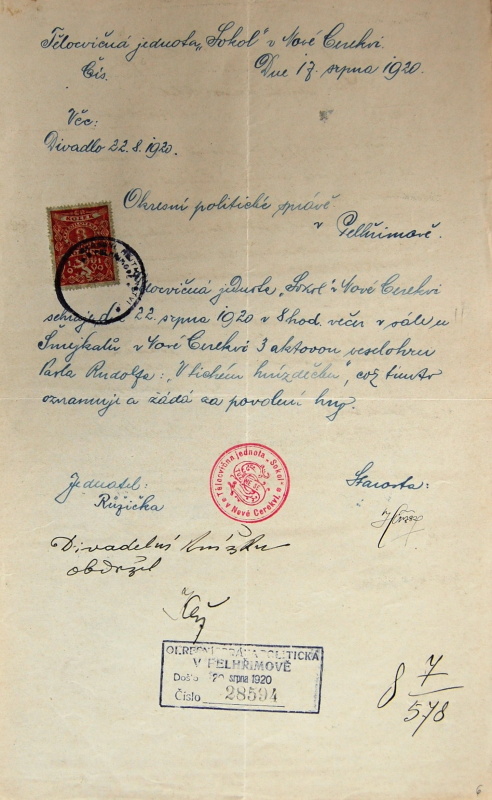 Tělocvičná jednota „Sokol“ v Nové Cerekvi.
Čís. Dne 17. srpna 1920.
Věc:
Divadlo 22.8.1920.
Okresní politické správě
v Pelhřimově.
Tělocvičná jednota „Sokol“ v Nové Cerekvi
sehraje dne 22. srpna 1920 v 8 hod. večer v sále u
Šmejkalů v Nové Cerekvi 3 aktovou veselohru
Karla Rudolfa: „V tichém hnízdečku“, což tímto
oznamuje a žádá za povolení hry.
Tělocvična jednota „Sokol“
v Nové Cerekvi.
Jednatel: Starosta:
Růžička
Divadelní knížku
obdržel
OKRESNÍ SPRÁVA POLITICKÁ
V PELHŘIMOVĚ
Došlo 20 srpna 1920
Číslo 28594
8 7/578
6